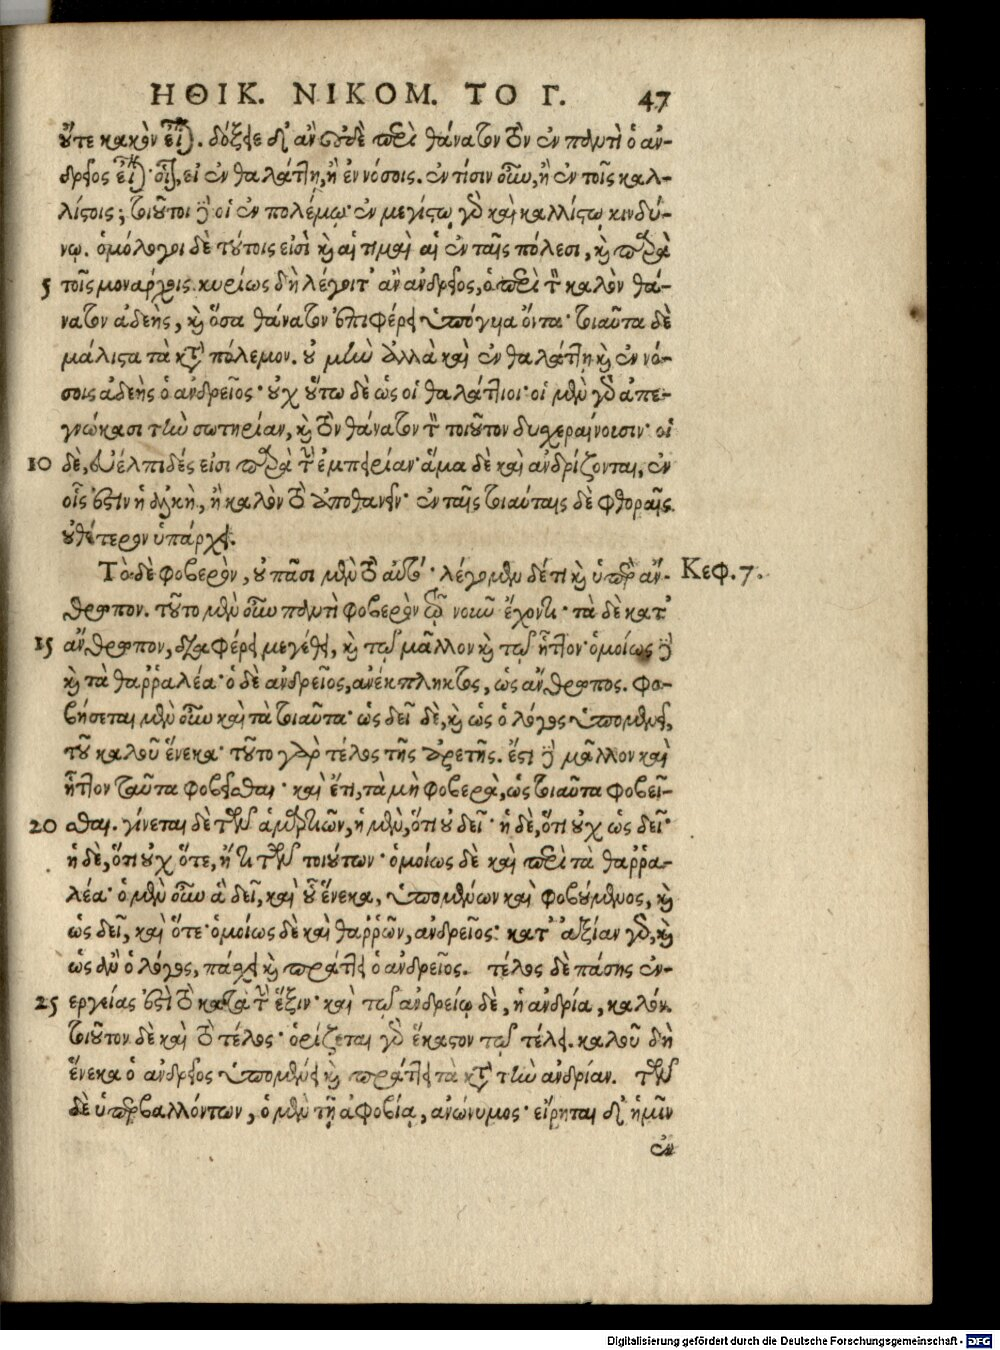 ΗΘΙΚ. ΝΙΚΟΜ. ΤΟ Γ. 47
οὔτε κακὸν εἶναι. δόξειε δ' ἂν οὐδὲ περὶ θάνατον τὸν ἐν παντὶ ὁ ἀν-
δρεῖος εἶναι· οἷον, εἰ ἐν θαλάττῃ, ἢ ἐν νόσοις. ἐν τίσιν οὖν, ἢ ἐν τοῖς καλ-
λίστοις; τοιοῦτοι δὲ οἱ ἐν πολέμῳ· ἐν μεγίστῳ γὰρ καὶ καλλίστῳ κινδύ-
νῳ. ὁμόλογοι δὲ τούτοις εἰσὶ καὶ αἱ τιμαὶ αἱ ἐν ταῖς πόλεσι, καὶ παρὰ
5 τοῖς μονάρχοις. κυρίως δὴ λέγοιτ' ἂν ἀνδρεῖος, ὁ περὶ τὸν καλὸν θά-
νατον ἀδεὴς, καὶ ὅσα θάνατον ἐπιφέρει ὑπόγυια ὄντα· τοιαῦτα δὲ
μάλιστα τὰ κατὰ πόλεμον. οὐ μὴν ἀλλὰ καὶ ἐν θαλάττῃ καὶ ἐν νό-
σοις ἀδεὴς ὁ ἀνδρεῖος· οὐχ οὕτω δὲ ὡς οἱ θαλάττιοι· οἱ μὲν γὰρ ἀπε-
γνώκασι τὴν σωτηρίαν, καὶ τὸν θάνατον τὸν τοιοῦτον δυχεραίνουσιν· οἱ
10 δὲ, εὐέλπιδές εἰσι παρὰ τὴν ἐμπειρίαν· ἅμα δὲ καὶ ἀνδρίζονται, ἐν
οἷς ἐστὶν ἡ ἀλκὴ, ἢ καλὸν τὸ ἀποθανεῖν· ἐν ταῖς τοιαύταις δὲ φθοραῖς
οὐθέτερον ὑπάρχει.
Τὸ δὲ φοβερὸν, οὐ πᾶσι μὲν τὸ αὐτό· λέγομεν δέ τι καὶ ὑπὲρ ἄν- Κεφ. 7.
θρωπον. τοῦτο μὲν οὖν παντὶ φοβερὸν τῷ νοῦν ἔχοντι· τὰ δὲ κατ'
15 ἄνθρωπον, διαφέρει μεγέθει, καὶ τῷ μᾶλλον καὶ τῷ ἧττον· ὁμοίως δὲ
καὶ τὰ θαῤῥαλέα· ὁ δὲ ἀνδρεῖος, ἀνέκπληκτος, ὡς ἄνθρωπος. φο-
βήσεται μὲν οὖν καὶ τὰ τοιαῦτα· ὡς δεῖ δὲ, καὶ ὡς ὁ λόγος ὑπομενεῖ,
τοῦ καλοῦ ἕνεκα· τοῦτο γὰρ τέλος τῆς ἀρετῆς. ἔστι δὲ μᾶλλον καὶ
ἧττον ταῦτα φοβεῖσθαι· καὶ ἔτι, τὰ μὴ φοβερὰ, ὡς τοιαῦτα φοβεῖ-
20 σθαι. γίνεται δὲ τῶν ἁμαρτιῶν, ἡ μὲν, ὅτι οὐ δεῖ· ἡ δὲ, ὅτι οὐχ ὡς δεῖ·
ἡ δὲ, ὅτι οὐχ ὅτε, ἤ τι τῶν τοιούτων· ὁμοίως δὲ καὶ περὶ τὰ θαῤῥα-
λέα· ὁ μὲν οὖν ἃ δεῖ, καὶ οὗ ἕνεκα, ὑπομένων καὶ φοβούμενος, καὶ
ὡς δεῖ, καὶ ὅτε· ὁμοίως δὲ καὶ θαῤῥῶν, ἀνδρεῖος· κατ' ἀξίαν γὰρ, καὶ
ὡς ἂν ὁ λόγος, πάσχει καὶ πράττει ὁ ἀνδρεῖος. τέλος δὲ πάσης ἐν-
25 εργείας ἐστὶ τὸ κατὰ τὴν ἕξιν· καὶ τῷ ἀνδρείῳ δὲ, ἡ ἀνδρία, καλόν.
τοιοῦτον δὲ καὶ τὸ τέλος· ὁρίζεται γὰρ ἕκαστον τῷ τέλει. καλοῦ δὴ
ἕνεκα ὁ ἀνδρεῖος ὑπομένει καὶ πράττει τὰ κατὰ τὴν ἀνδρίαν. τῶν
δὲ ὑπερβαλλόντων, ὁ μὲν τῇ ἀφοβίᾳ, ἀνώνυμος· εἴρηται δ' ἡμῖν
ἐν
Digitalisierung gefördert durch die Deutsche Forschungsgemeinschaft - DFG